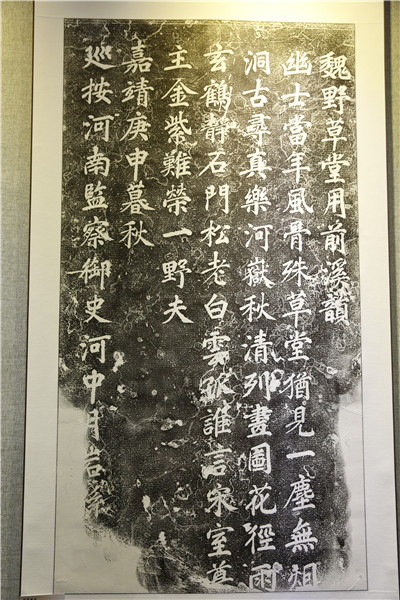 魏野草堂用前溪韻
幽士當年風骨殊草堂猶見一塵無烟
洞古尋真樂河嶽秋清列畫圖花徑雨
玄鶴靜石門松老白雲孤誰言宋室尊
主金紫難榮一野夫
嘉靖庚申暮秋
巡按河南監察御史河中月岩